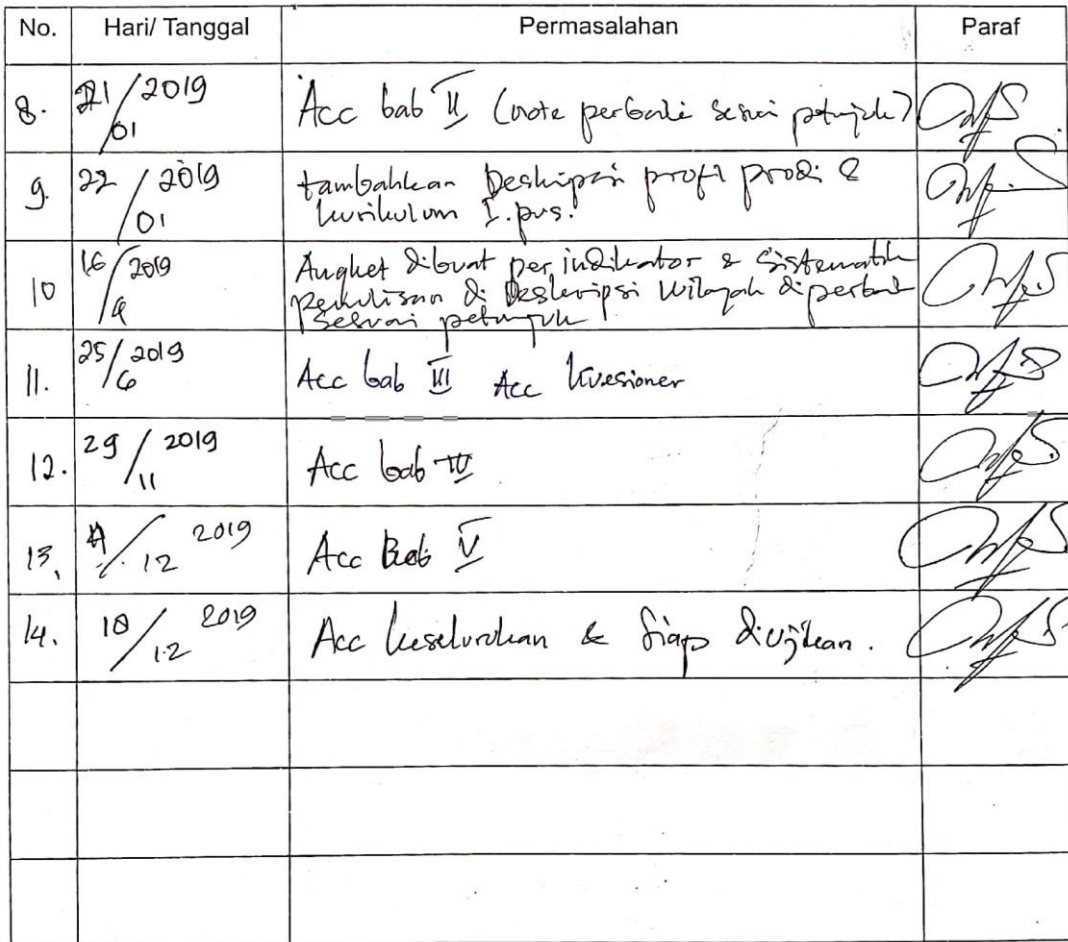 No. Hari/ Tanggal Permasalahan Paraf
8. 21/01 2019 Acc bab II (note perbaiki sesuai petunjuk)
9. 22/01 2019 tambahkan Deskripsi profil prodi &
kurikulum I.pus.
10 16/ 2019 Angket dibuat per indikator & Sistematik
penulisan di Deskripsi Wilayah diperbaik
sesuai petunjuk
11. 25/6 2019 Acc bab III Acc kuesioner
12. 29/11 2019 Acc bab IV
13. /12 2019 Acc Bab V
14. 10/12 2019 Acc keseluruhan & Siap diujikan.